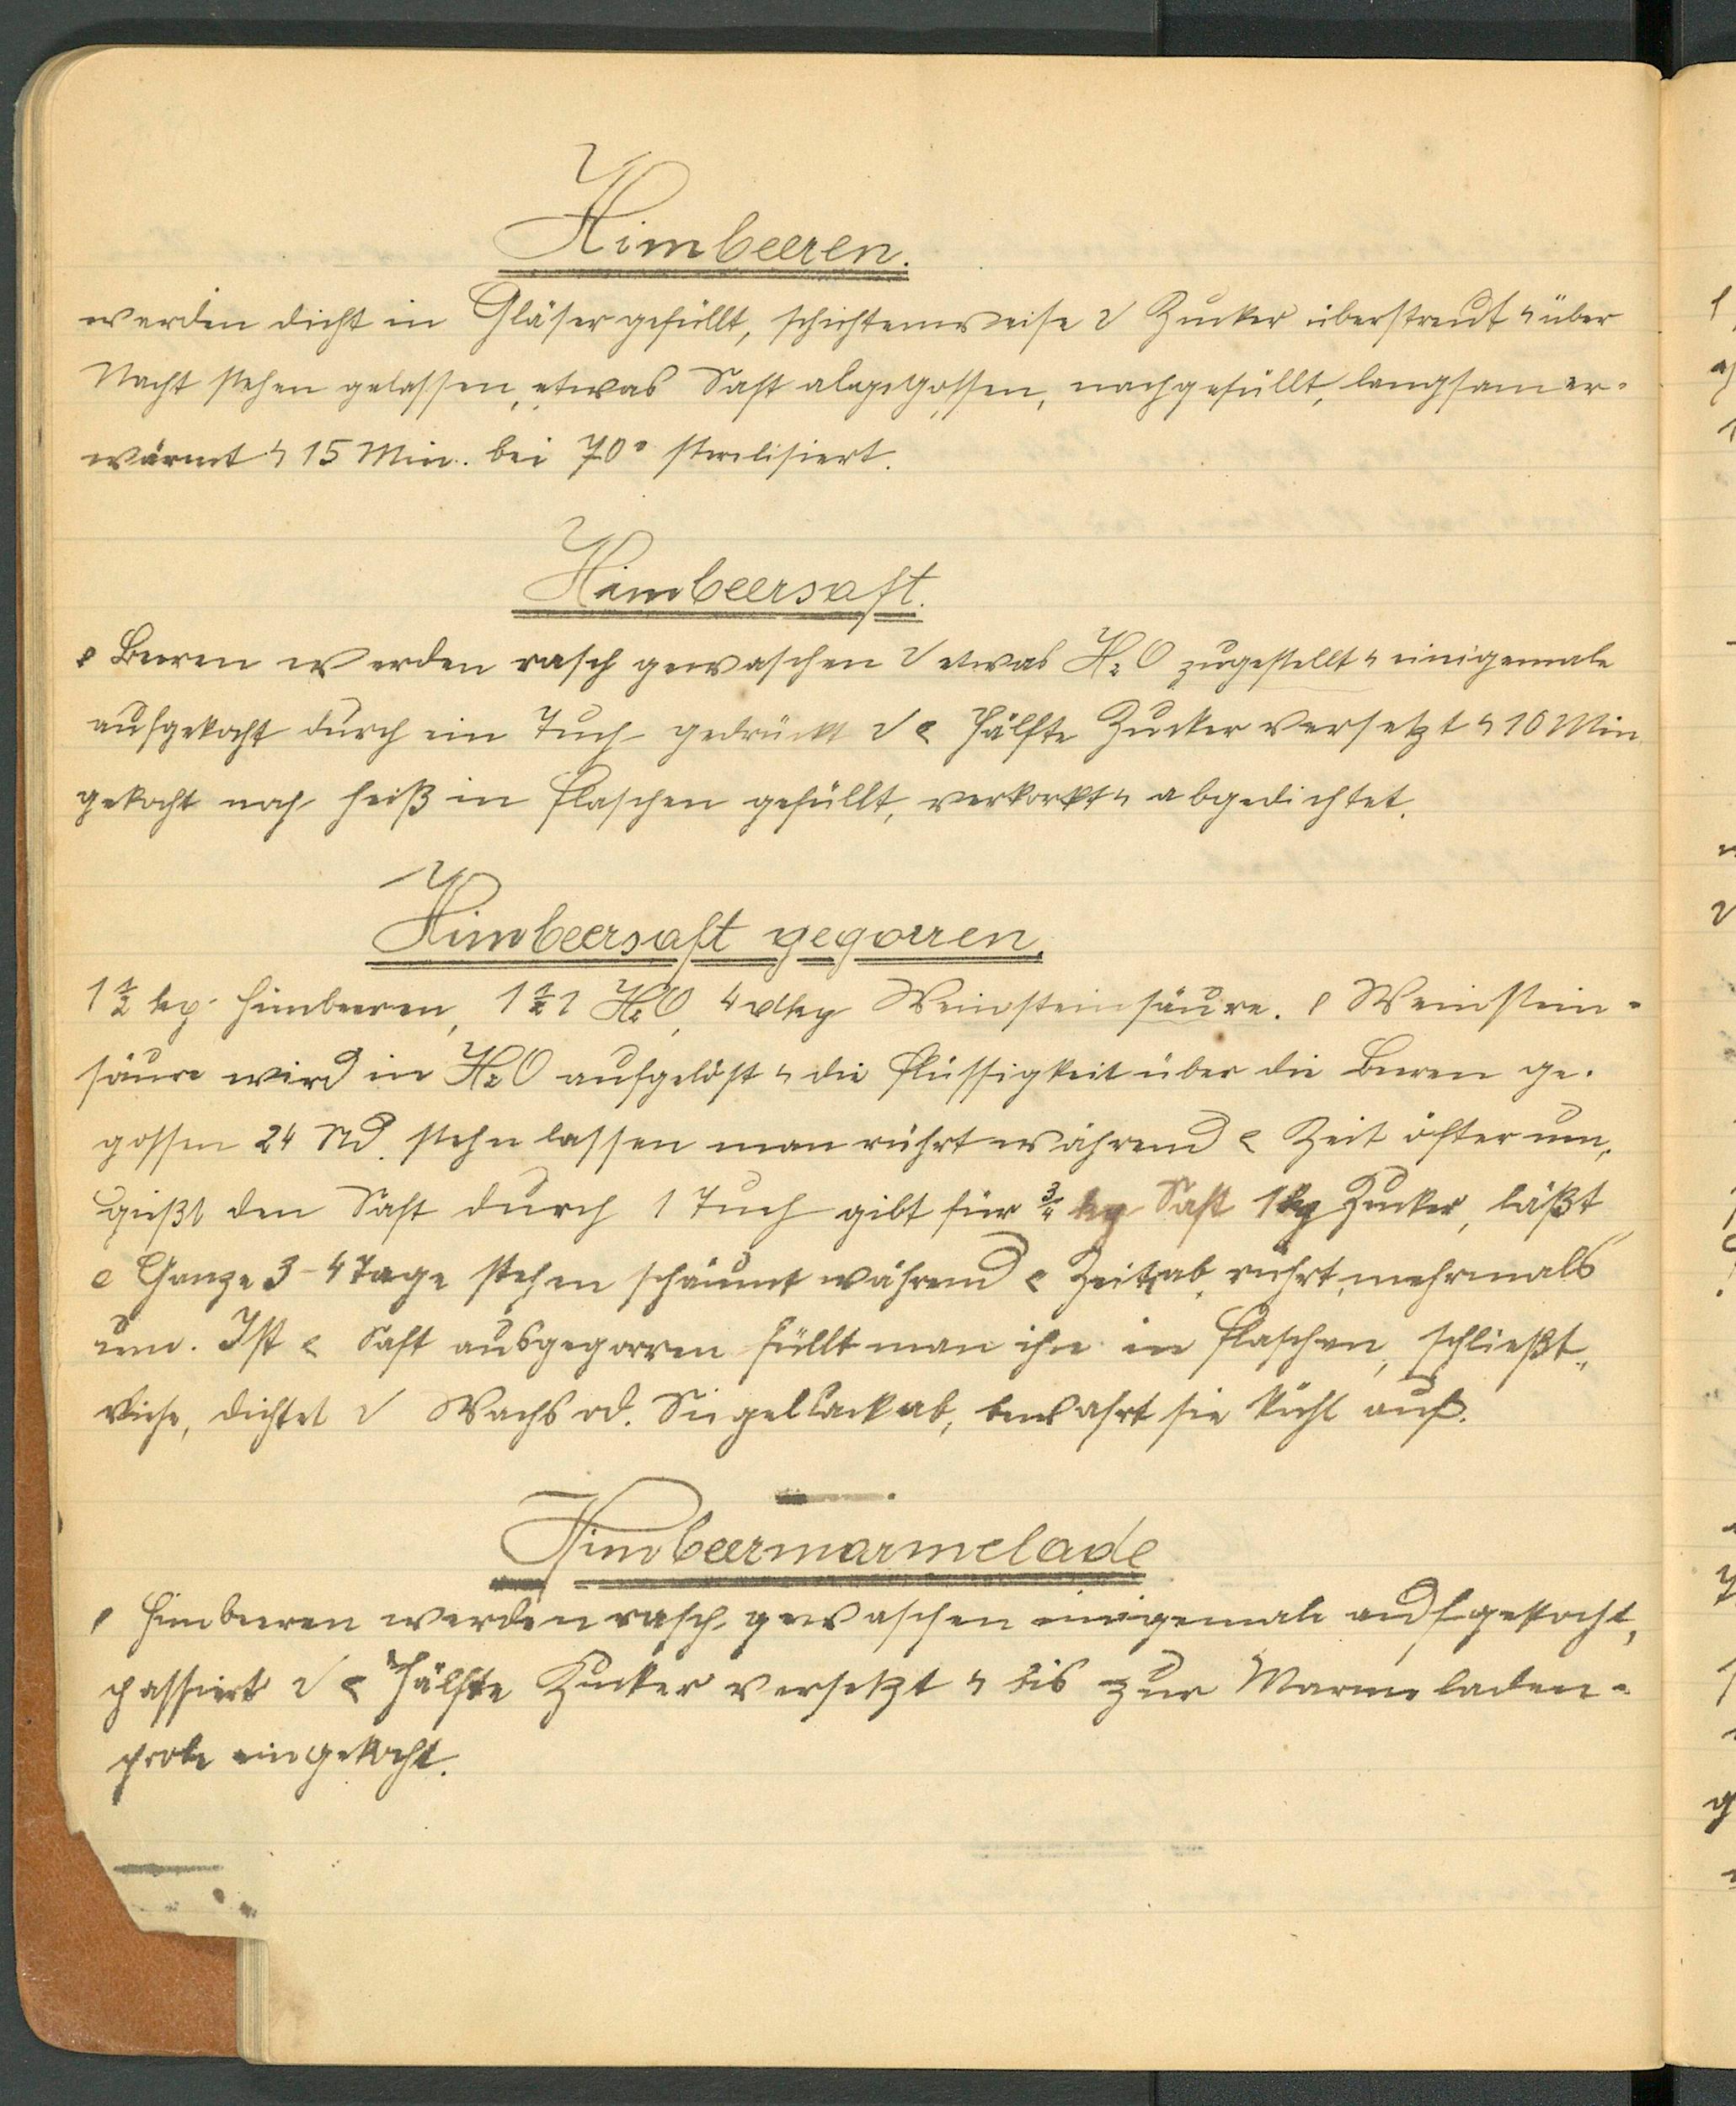 Himbeeren.
werden dicht in Gläser gefüllt, schichtenweise √ Zucker überstreut ५ über
Nacht stehen gelassen, etwas Saft abgegossen, nachgefüllt, langsam er-
wärmt ५ 15 Min. bei 70° sterilisiert.
Himbeersaft.
Beeren werden rasch gewaschen √ etwas H₂O zugestellt ५ einigemale
aufgekocht durch ein Tuch gedrückt √ e Hälfte Zucker versetzt ५ 10 Min.
gekocht noch heiß in Flaschen gefüllt, verkorkt ५ abgedichtet.
Himbeersaft gegorren.
1 1/2 kg Himbeeren, 1 1/2 l H₂O, 4 dkg Weinsteinsäure. e Weinstein-
säure wird in H₂O aufgelöst ५ die Flüssigkeit über die Beeren ge-
gossen 24 Std. stehn lassen man rührt während e Zeit öfter um,
gießt den Saft durch 1 Tuch gibt für 3/4 kg Saft 1 kg Zucker, läßt
e Ganze 3-4 Tage stehen schäumt während e Zeit ab, rührt mehrmals
um. Ist e Saft ausgegorren füllt man ihn in Flaschen, schließt
, dichtet √ Wachs od. Siegellack ab, bewahrt sie kühl auf.
Himbeermarmelade
e Himbeeren werden rasch gewaschen einigemale aufgekocht,
passiert √ e Hälfte Zucker versetzt ५ bis zur Marmeladen-
probe eingekocht.